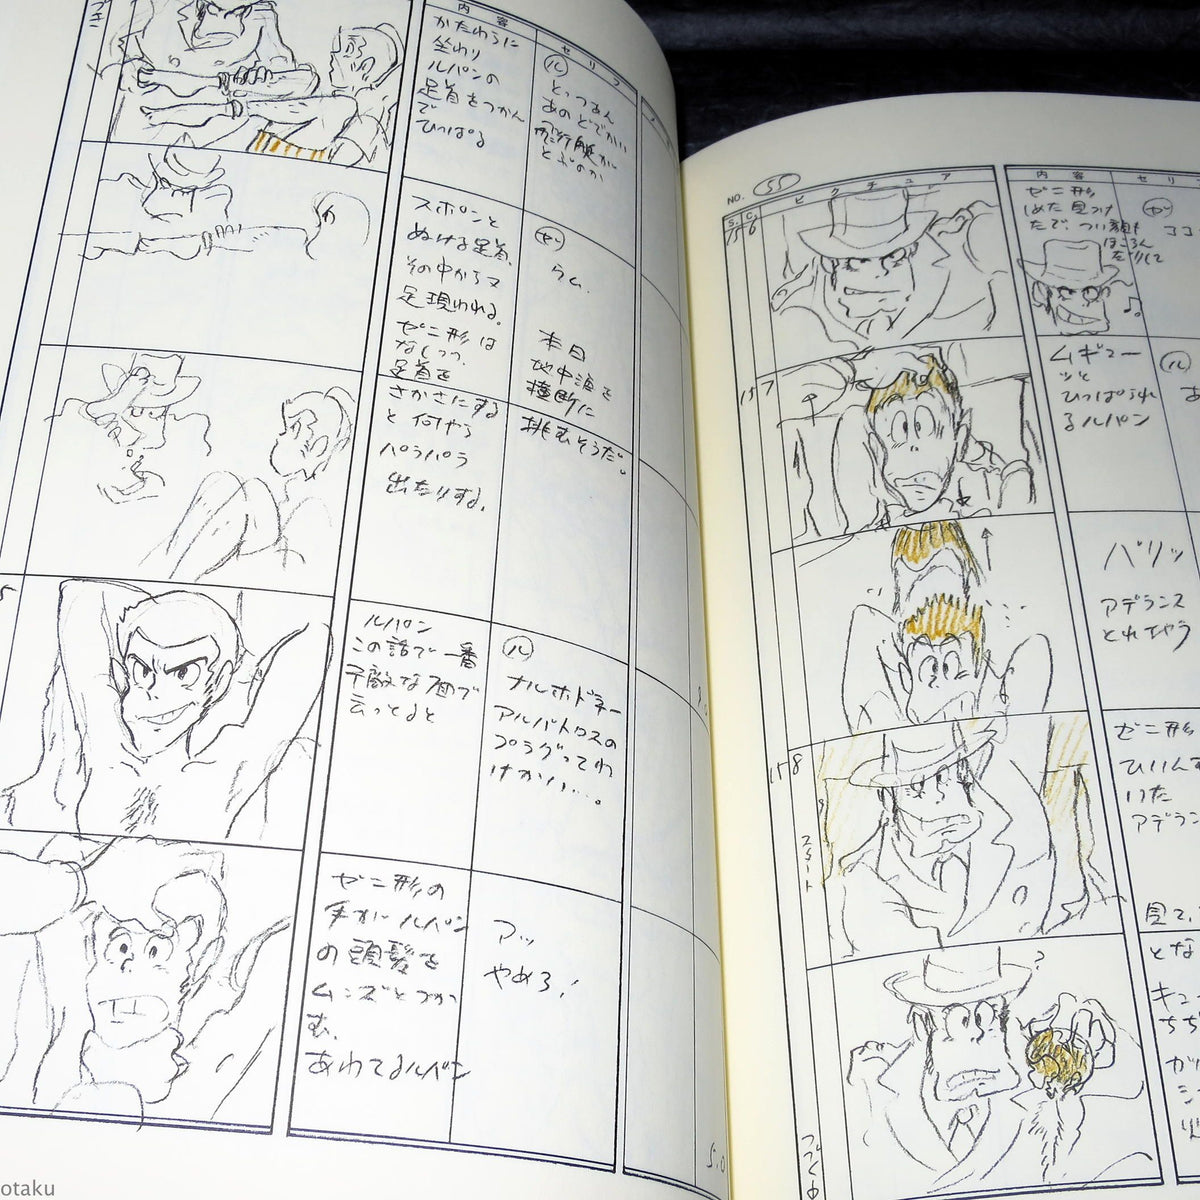 つづき
内容
セリフ
かたわらに
坐わり
ルパンの
足首をつかん
で
ひっぱる
ル
とっつあん
あのどでかい
飛行艇が
とぶのか
スポンと
ぬける足首、
その中からマタ
足現われる。
ゼニ形は
足首を
さかさにする
と何やら
パラパラ
出たりする。
ゼ
うム.
本日
地中海を
横断に
挑むそうだ。
ルパン
この話で一番
不敵な面で
云ってると
ル
ナルホドネー
アルバトロスの
ゼニ形の
手がルパン
の頭髪を
ムンズとつか
む、
あわてるルパン
アッ
やめろ!
5.0
NO. 55
S. C. ピクチュア
内容
15 6
ゼニ形
しめた見つけ
たで、つい顔も
ほころん
ゼ
ココ
♪。
15 7
ムギュー
ッと
ひっぱられ
るルパン
ル
あ
バリッ
アデランス
とれちゃう
15 8
スタート
ゼニ形
ひんす
アデラン
見て、
とな
キュ
ちち
がツ
シ
?
つづく
otaku